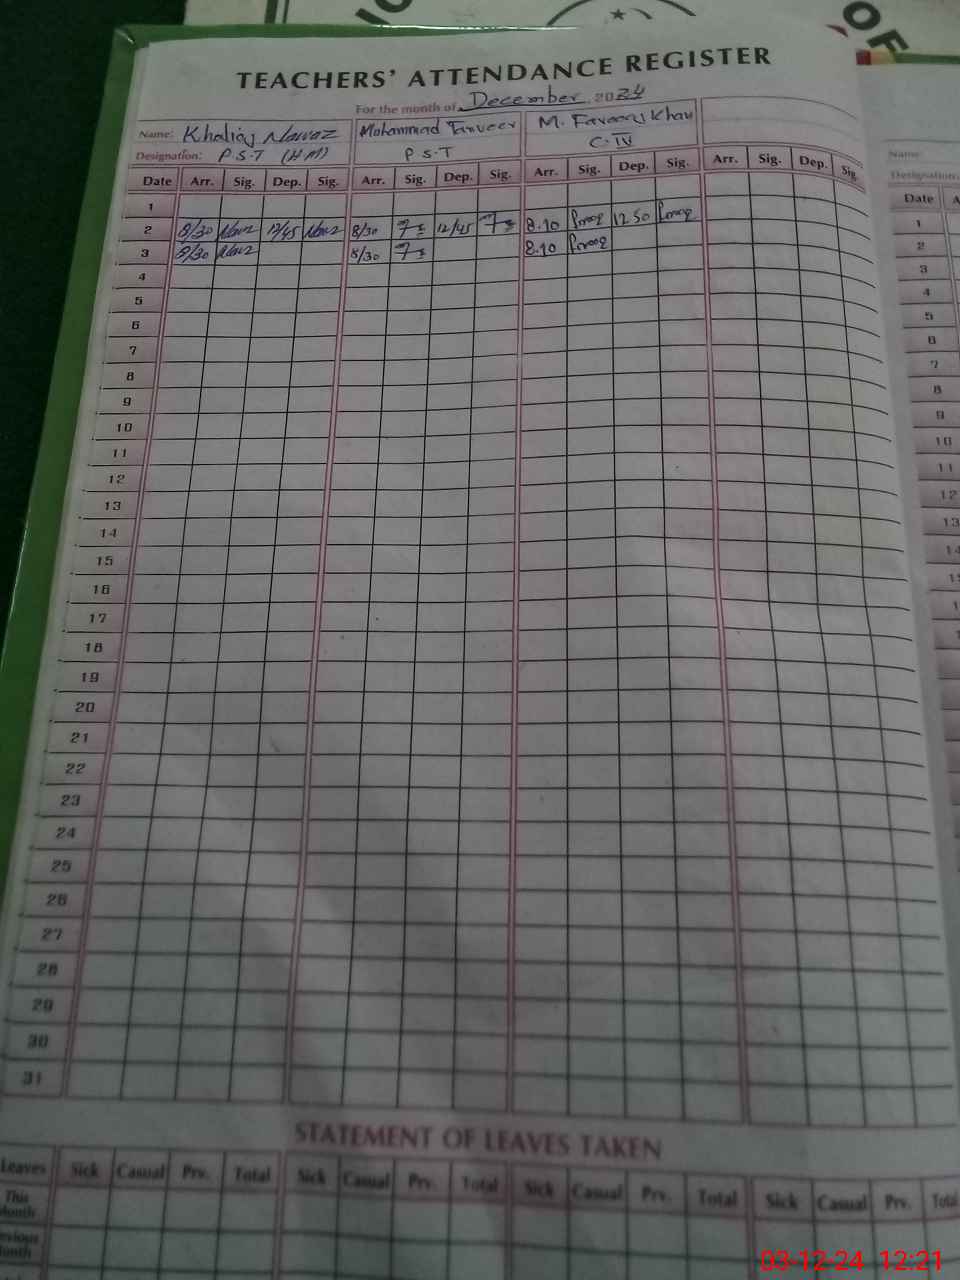 OF
TEACHERS' ATTENDANCE REGISTER
For the month of December 2024
Name: Khaliq Nawaz Mohammad Tanveer M. Farooq Khan
Designation: P.S.T (HM) P S.T C-IV
Date Arr. Sig. Dep. Sig. Arr. Sig. Dep. Sig. Arr. Sig. Dep. Sig. Arr. Sig. Dep. Sig.
1
2 8/30 Nawz 12/45 Nawz 8/30 12/45 8.10 Farooq 12 50 Farooq
3 8/30 Nawz 8/30 8.10 Farooq
4
5
6
7
8
9
10
11
12
13
14
15
16
17
18
19
20
21
22
23
24
25
26
27
28
29
30
31
STATEMENT OF LEAVES TAKEN
Leaves Sick Casual Prv. Total Sick Casual Prv. Total Sick Casual Prv. Total Sick Casual Prv. Total
This
Month
Name:
Designation:
Date
1
2
3
4
5
6
7
8
9
10
11
12
13
14
03-12-24 12:21